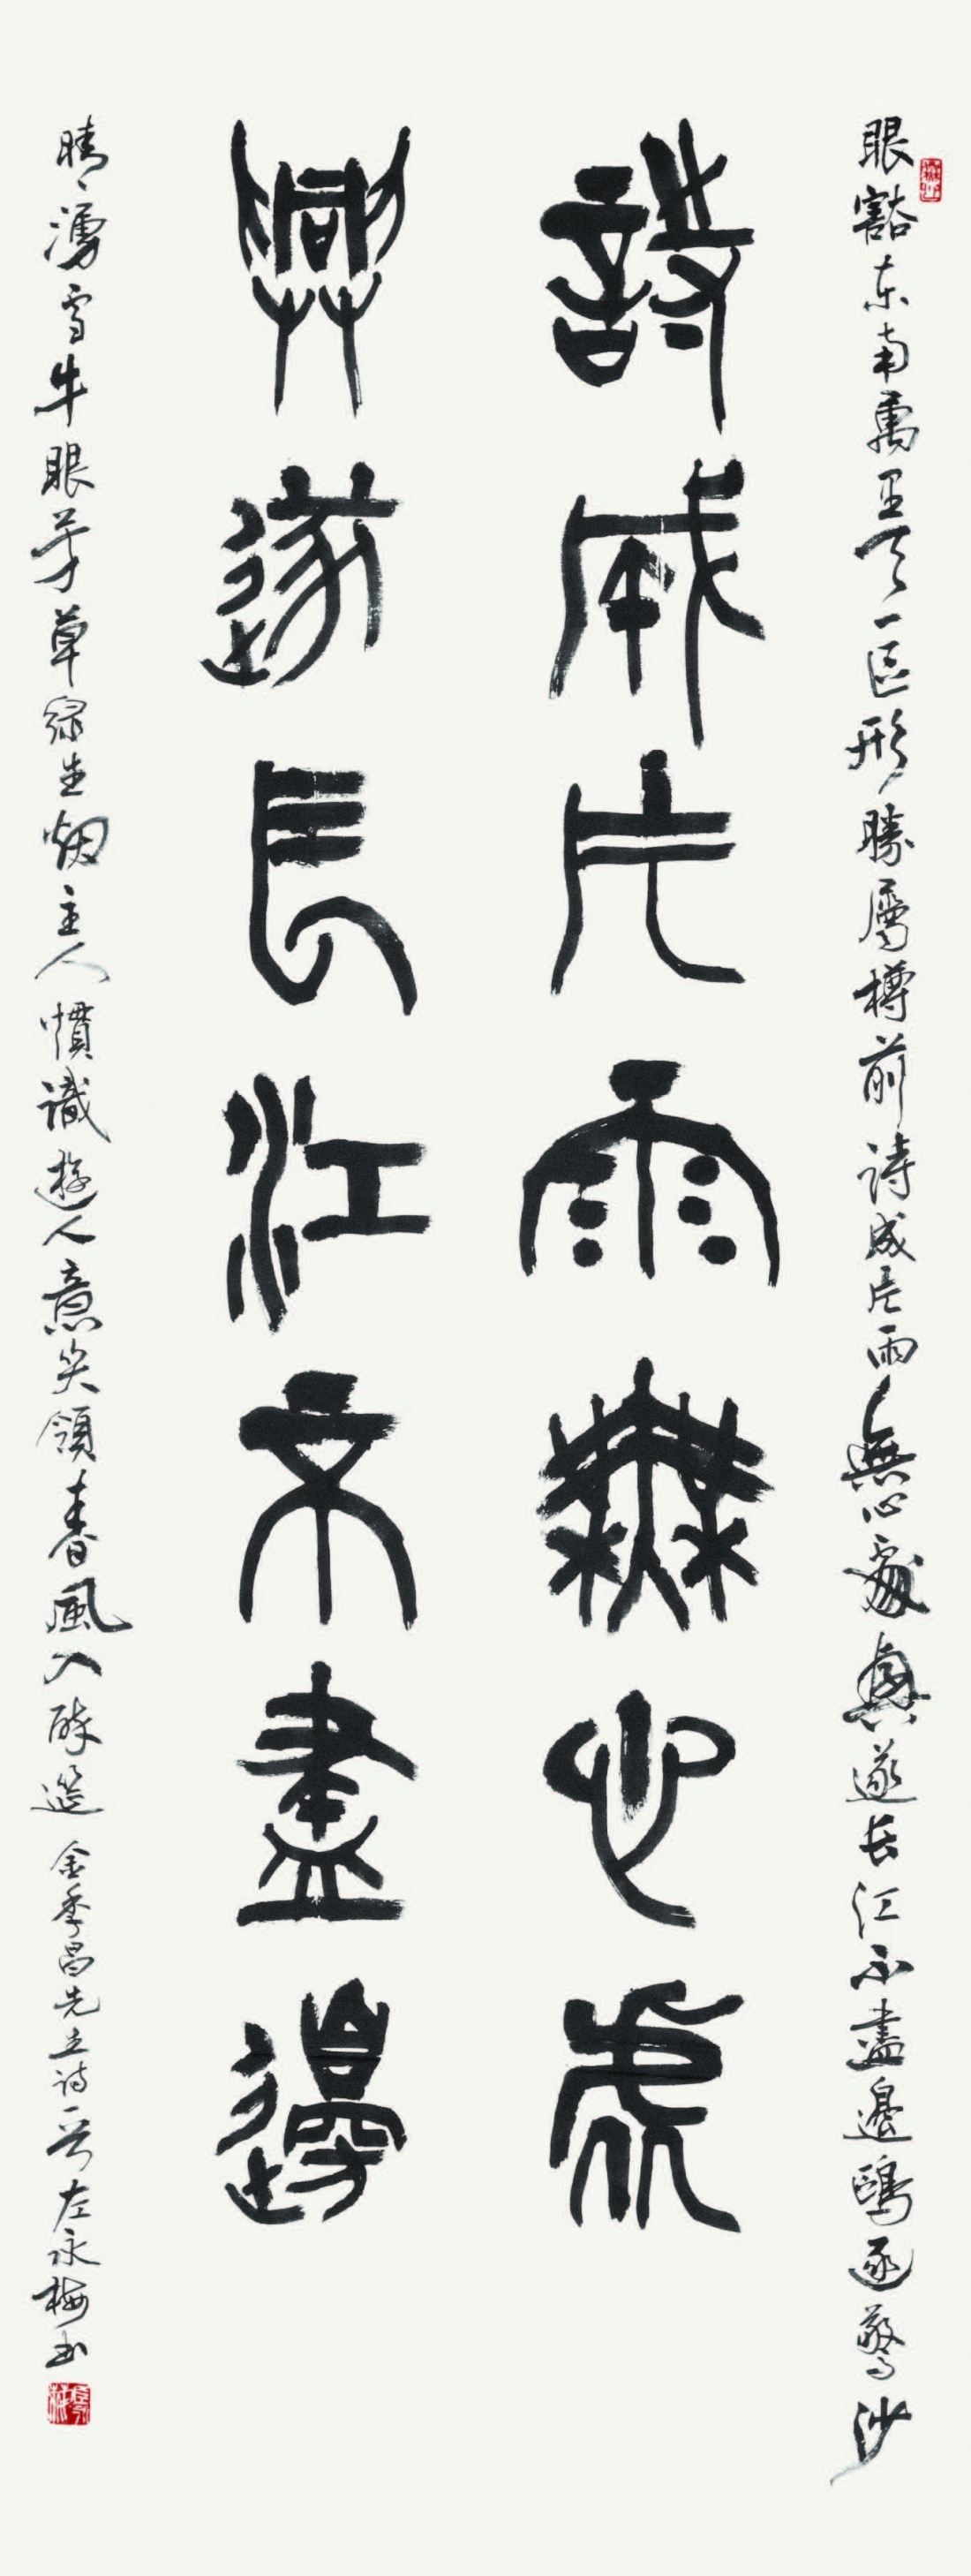 眼豁東南萬里天一區形勝屬樽前詩成片雨無心處興遂長江不盡邊鷗逐驚沙
詩成片雨無心處
興遂長江不盡邊
晴湧雪牛眠芳草綠生烟主人慣識遊人意笑領春風入醉筵 金季昌先生詩一首 左永梅書